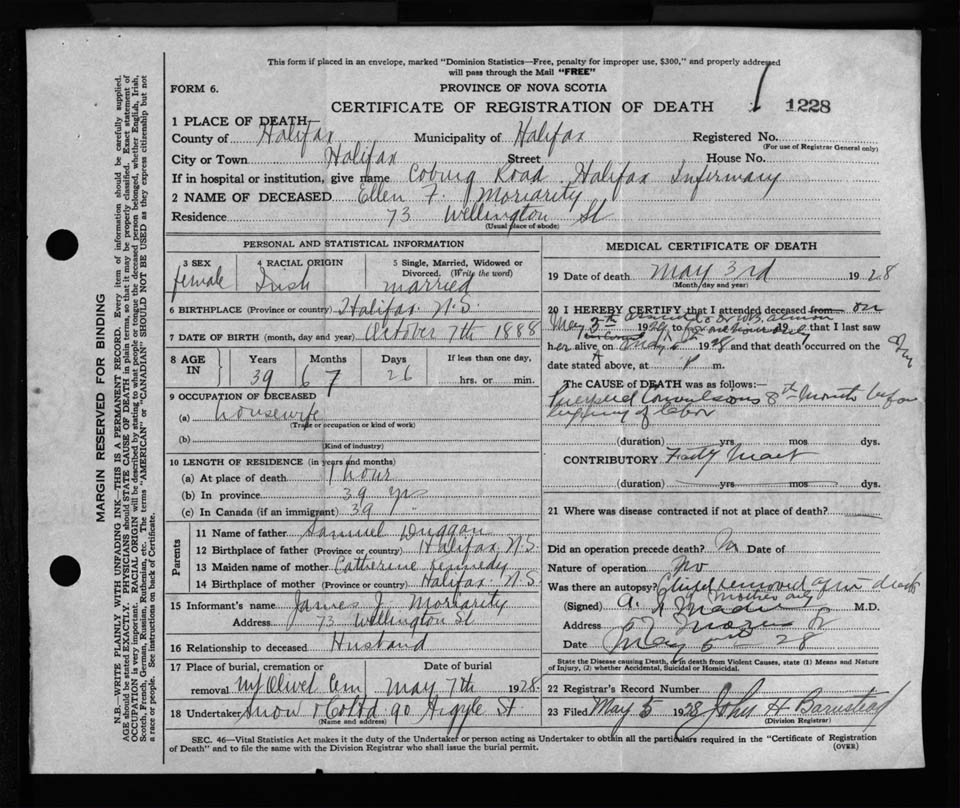 This form if placed in an envelope, marked "Dominion Statistics—Free, penalty for improper use, $300," and properly addressed
will pass through the Mail "FREE"
FORM 6.
PROVINCE OF NOVA SCOTIA
CERTIFICATE OF REGISTRATION OF DEATH
1228
1 PLACE OF DEATH
County of Halifax Municipality of Halifax Registered No.
(For use of Registrar General only)
City or Town Halifax Street House No.
If in hospital or institution, give name Coburg Road Halifax Infirmary
2 NAME OF DECEASED Ellen F. Moriarity
Residence 73 Wellington St
(Usual place of abode)
MARGIN RESERVED FOR BINDING
N.B. WRITE PLAINLY WITH UNFADING INK—THIS IS A PERMANENT RECORD. Every item of information should be carefully supplied.
AGE should be stated EXACTLY. PHYSICIANS should STATE CAUSE OF DEATH in plain terms, so that it may be properly classified. Exact statement of
OCCUPATION is very important. RACIAL ORIGIN will be described by stating to what people or tongue the deceased person belonged, whether English, Irish,
Scotch, French, German, Russian, Ruthenian, etc. The terms "AMERICAN" or "CANADIAN" SHOULD NOT BE USED as they express citizenship but not
a race or people. See instructions on back of Certificate.
PERSONAL AND STATISTICAL INFORMATION
3 SEX
female
4 RACIAL ORIGIN
Irish
5 Single, Married, Widowed or
Divorced. (Write the word)
married
6 BIRTHPLACE (Province or country) Halifax N.S.
7 DATE OF BIRTH (month, day and year) October 7th 1888
8 AGE IN
Years Months Days If less than one day,
39 6 7 26 hrs. or min.
9 OCCUPATION OF DECEASED
(a) housewife
(Trade or occupation or kind of work)
(b)
(Kind of industry)
10 LENGTH OF RESIDENCE (in years and months)
(a) At place of death 1 hour
(b) In province 39 yrs
(c) In Canada (if an immigrant) 39 "
Parents
11 Name of father Samuel Duggan
12 Birthplace of father (Province or country) Halifax N.S.
13 Maiden name of mother Catherine Kennedy
14 Birthplace of mother (Province or country) Halifax N.S.
15 Informant's name James J. Moriarity
Address 73 Wellington St
16 Relationship to deceased Husband
17 Place of burial, cremation or Date of burial
removal Mt Olivet Cem May 7th 1928
18 Undertaker Snow & Co Ltd 90 Argyle St
(Name and address)
MEDICAL CERTIFICATE OF DEATH
19 Date of death May 3rd 1928
(Month, day and year)
20 I HEREBY CERTIFY that I attended deceased from on
May 3 1928 to 19 that I last saw
her alive on 1928 and that death occurred on the
date stated above, at 8 m.
The CAUSE of DEATH was as follows:—
Convulsions 8th Month before
of labor
(duration) yrs mos dys.
CONTRIBUTORY
(duration) yrs mos dys.
21 Where was disease contracted if not at place of death?
Did an operation precede death? No Date of
Nature of operation No
Was there an autopsy? Child removed after death
mother only
(Signed) A. M.D.
Address
Date May 5 28
State the Disease causing Death, or in death from Violent Causes, state (1) Means and Nature
of Injury, (2) whether Accidental, Suicidal or Homicidal.
22 Registrar's Record Number
23 Filed May 5 1928 John H Barnstead
(Division Registrar)
SEC. 46—Vital Statistics Act makes it the duty of the Undertaker or person acting as Undertaker to obtain all the particulars required in the "Certificate of Registration
of Death" and to file the same with the Division Registrar who shall issue the burial permit.
(OVER)